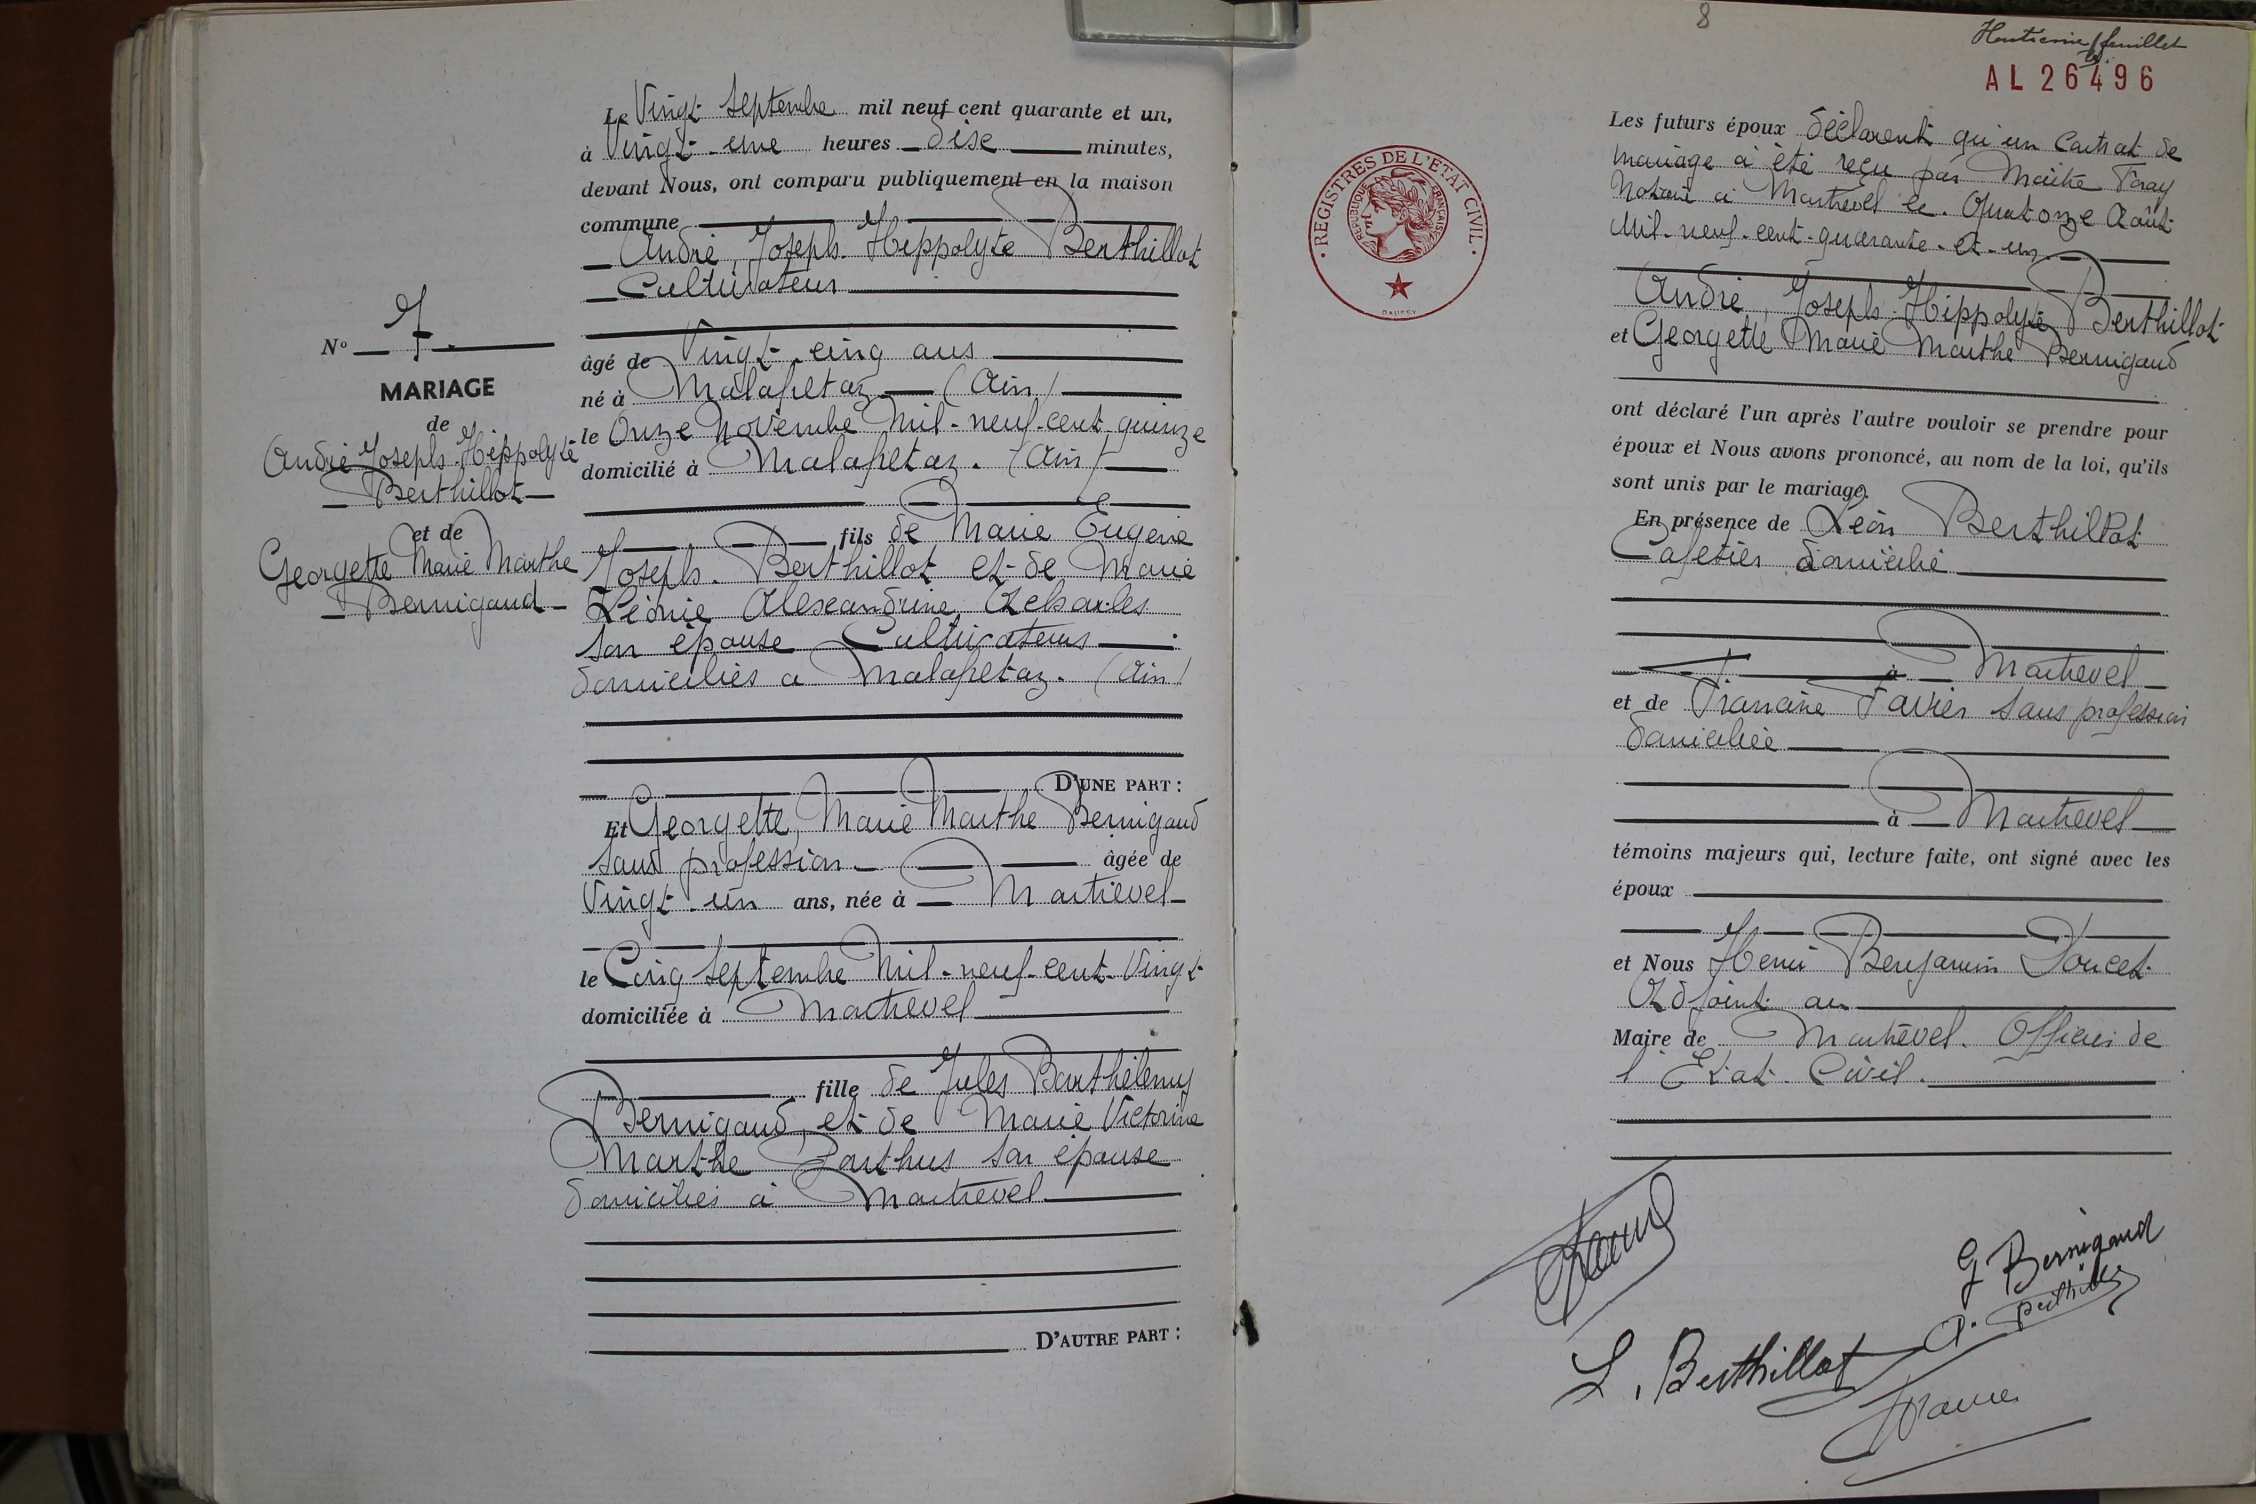 Le Vingt Septembre mil neuf cent quarante et un,
à Vingt-une heures dise minutes,
devant Nous, ont comparu publiquement en la maison
commune
André, Joseph Hippolyte Berthillot
Cultivateur
N° 7
MARIAGE
de
André Joseph Hippolyte
Berthillot
et de
Georgette Marie Marthe
Bernigaud
âgé de Vingt-cinq ans
né à Malafretaz (Ain)
le Onze Novembre Mil-neuf-cent-quinze
domicilié à Malafretaz. (Ain)
fils de Marie Eugène
Joseph Berthillot et de Marie
Léonie Alexandrine
son épouse Cultivateurs
domiciliés à Malafretaz. (Ain)
D'UNE PART :
Et Georgette, Marie Marthe Bernigaud
sans profession âgée de
Vingt-un ans, née à Montrevel
le Cinq Septembre Mil-neuf-cent-Vingt
domiciliée à Montrevel
fille de Jules Barthélemy
Bernigaud, et de Marie Victorine
Marthe son épouse
domiciliés à Montrevel
D'AUTRE PART :
8
Huitième feuillet
AL 26496
REGISTRES DE L'ÉTAT CIVIL
RÉPUBLIQUE FRANÇAISE
Les futurs époux déclarent qu'un Contrat de
mariage a été reçu par Maître
Notaire à Montrevel le. Quatorze Août
Mil-neuf-cent-quarante-et-un
André, Joseph Hippolyte Berthillot
et Georgette Marie Marthe Bernigaud
ont déclaré l'un après l'autre vouloir se prendre pour
époux et Nous avons prononcé, au nom de la loi, qu'ils
sont unis par le mariage.
En présence de Léon Berthillot
Cafetier domicilié
à Montrevel
et de Francine Favier sans profession
domiciliée
à Montrevel
témoins majeurs qui, lecture faite, ont signé avec les
époux
et Nous Henri Benjamin Doucet
Adjoint au
Maire de Montrevel. Officier de
l'Etat-Civil.
G Bernigaud
A. Berthillot
L. Berthillot